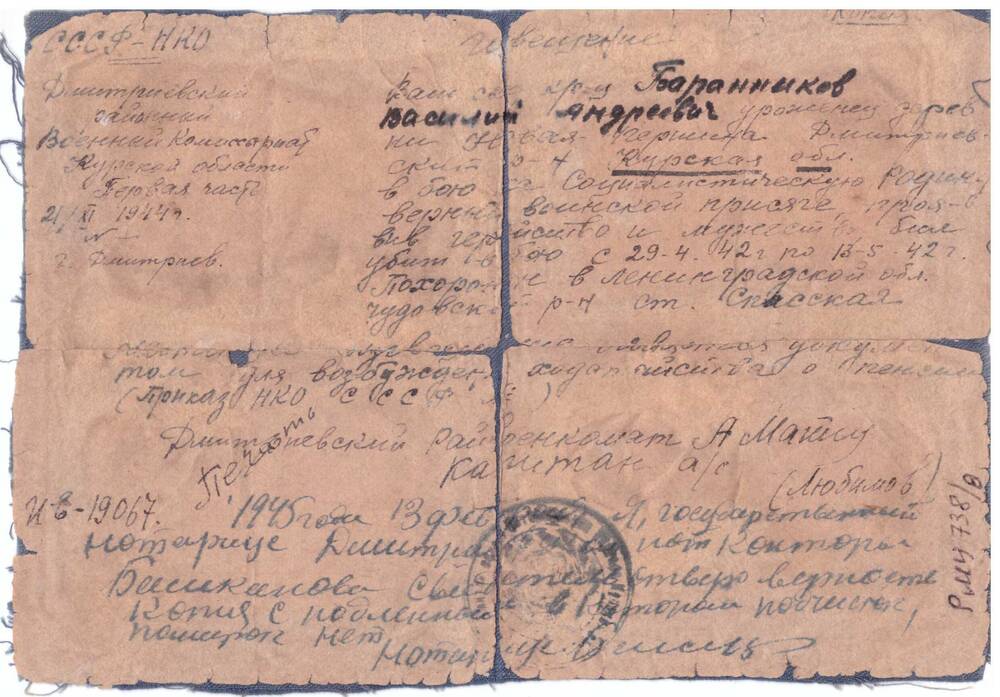 Копия
СССР-НКО
Извещение
Дмитриевский
районный
Военный Комисариат
Курской области
Первая часть
21/XI 1944 г.
N —
г. Дмитриев.
Ваш кр-ц Баранников
Василий Андреевич уроженец дерев
ни Новая Першина Дмитриев-
ский р-н Курская обл.
в бою за Социалистическую Родину
верный воинской присяге, прояв-
вив геройство и мужество был
убит в бою с 29-4. 42 г по 13-5-42 г.
Похоронен в Ленинградской обл.
Чудовский р-н ст. Спасская
является докумен
том для возбуждения ходатайства о пенсии
(Приказ НКО СССР N)
Печать
Дмитриевский Райвоенкомат
Капитан а/с
(Любимов)
И-в-19067. 1945 года 13 фев Я, государственный
нотариус Дмитриев нот конторы
Башканова свидетельствую верность
копия с подленным в котором подчисток,
помарок нет
Нотариус
РМИ 738/9